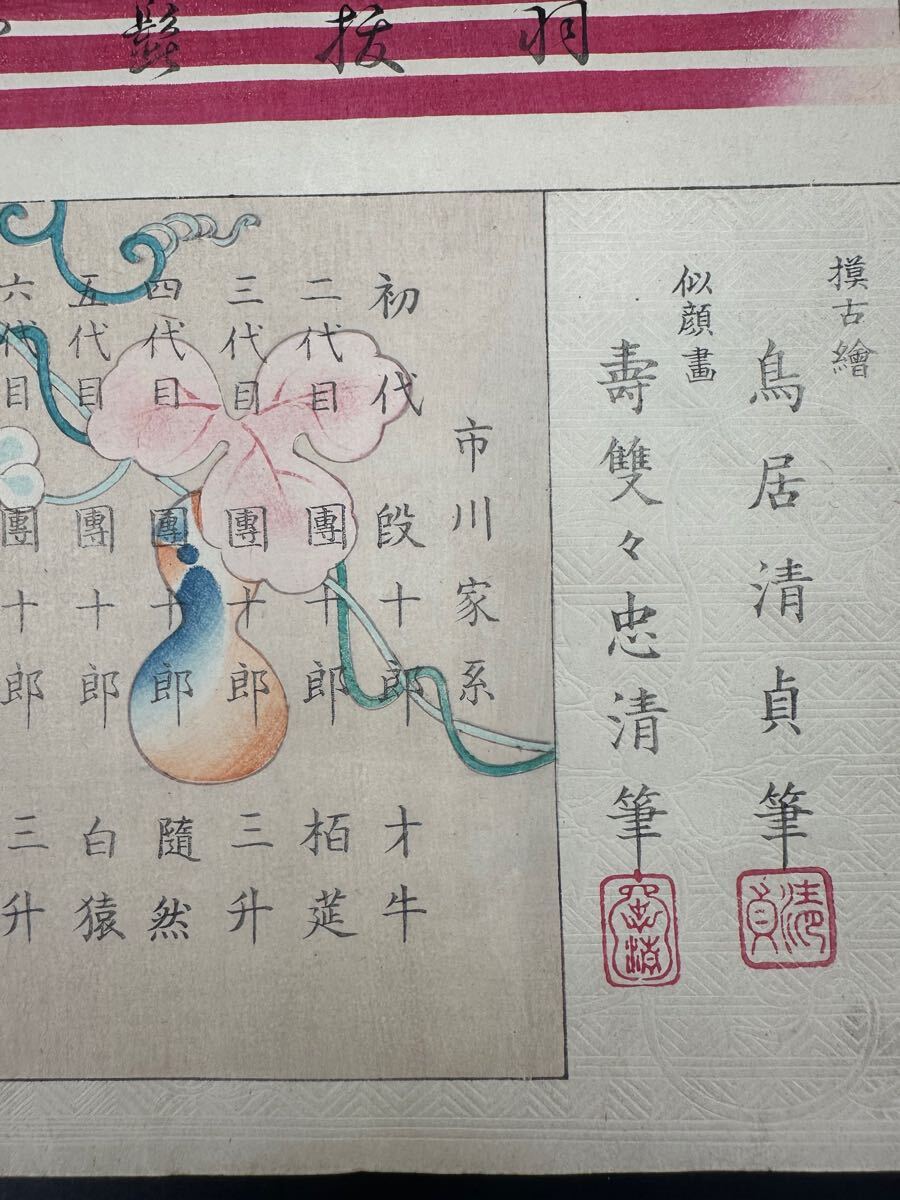 羽抜髭
摸古繪
鳥居清貞筆
清貞
似顔畫
壽雙々忠清筆
市川家系
初代 段十郎 才牛
二代目 團十郎 栢莚
三代目 團十郎 三升
四代目 團十郎 隨然
五代目 團十郎 白猿
六代目 團十郎 三升